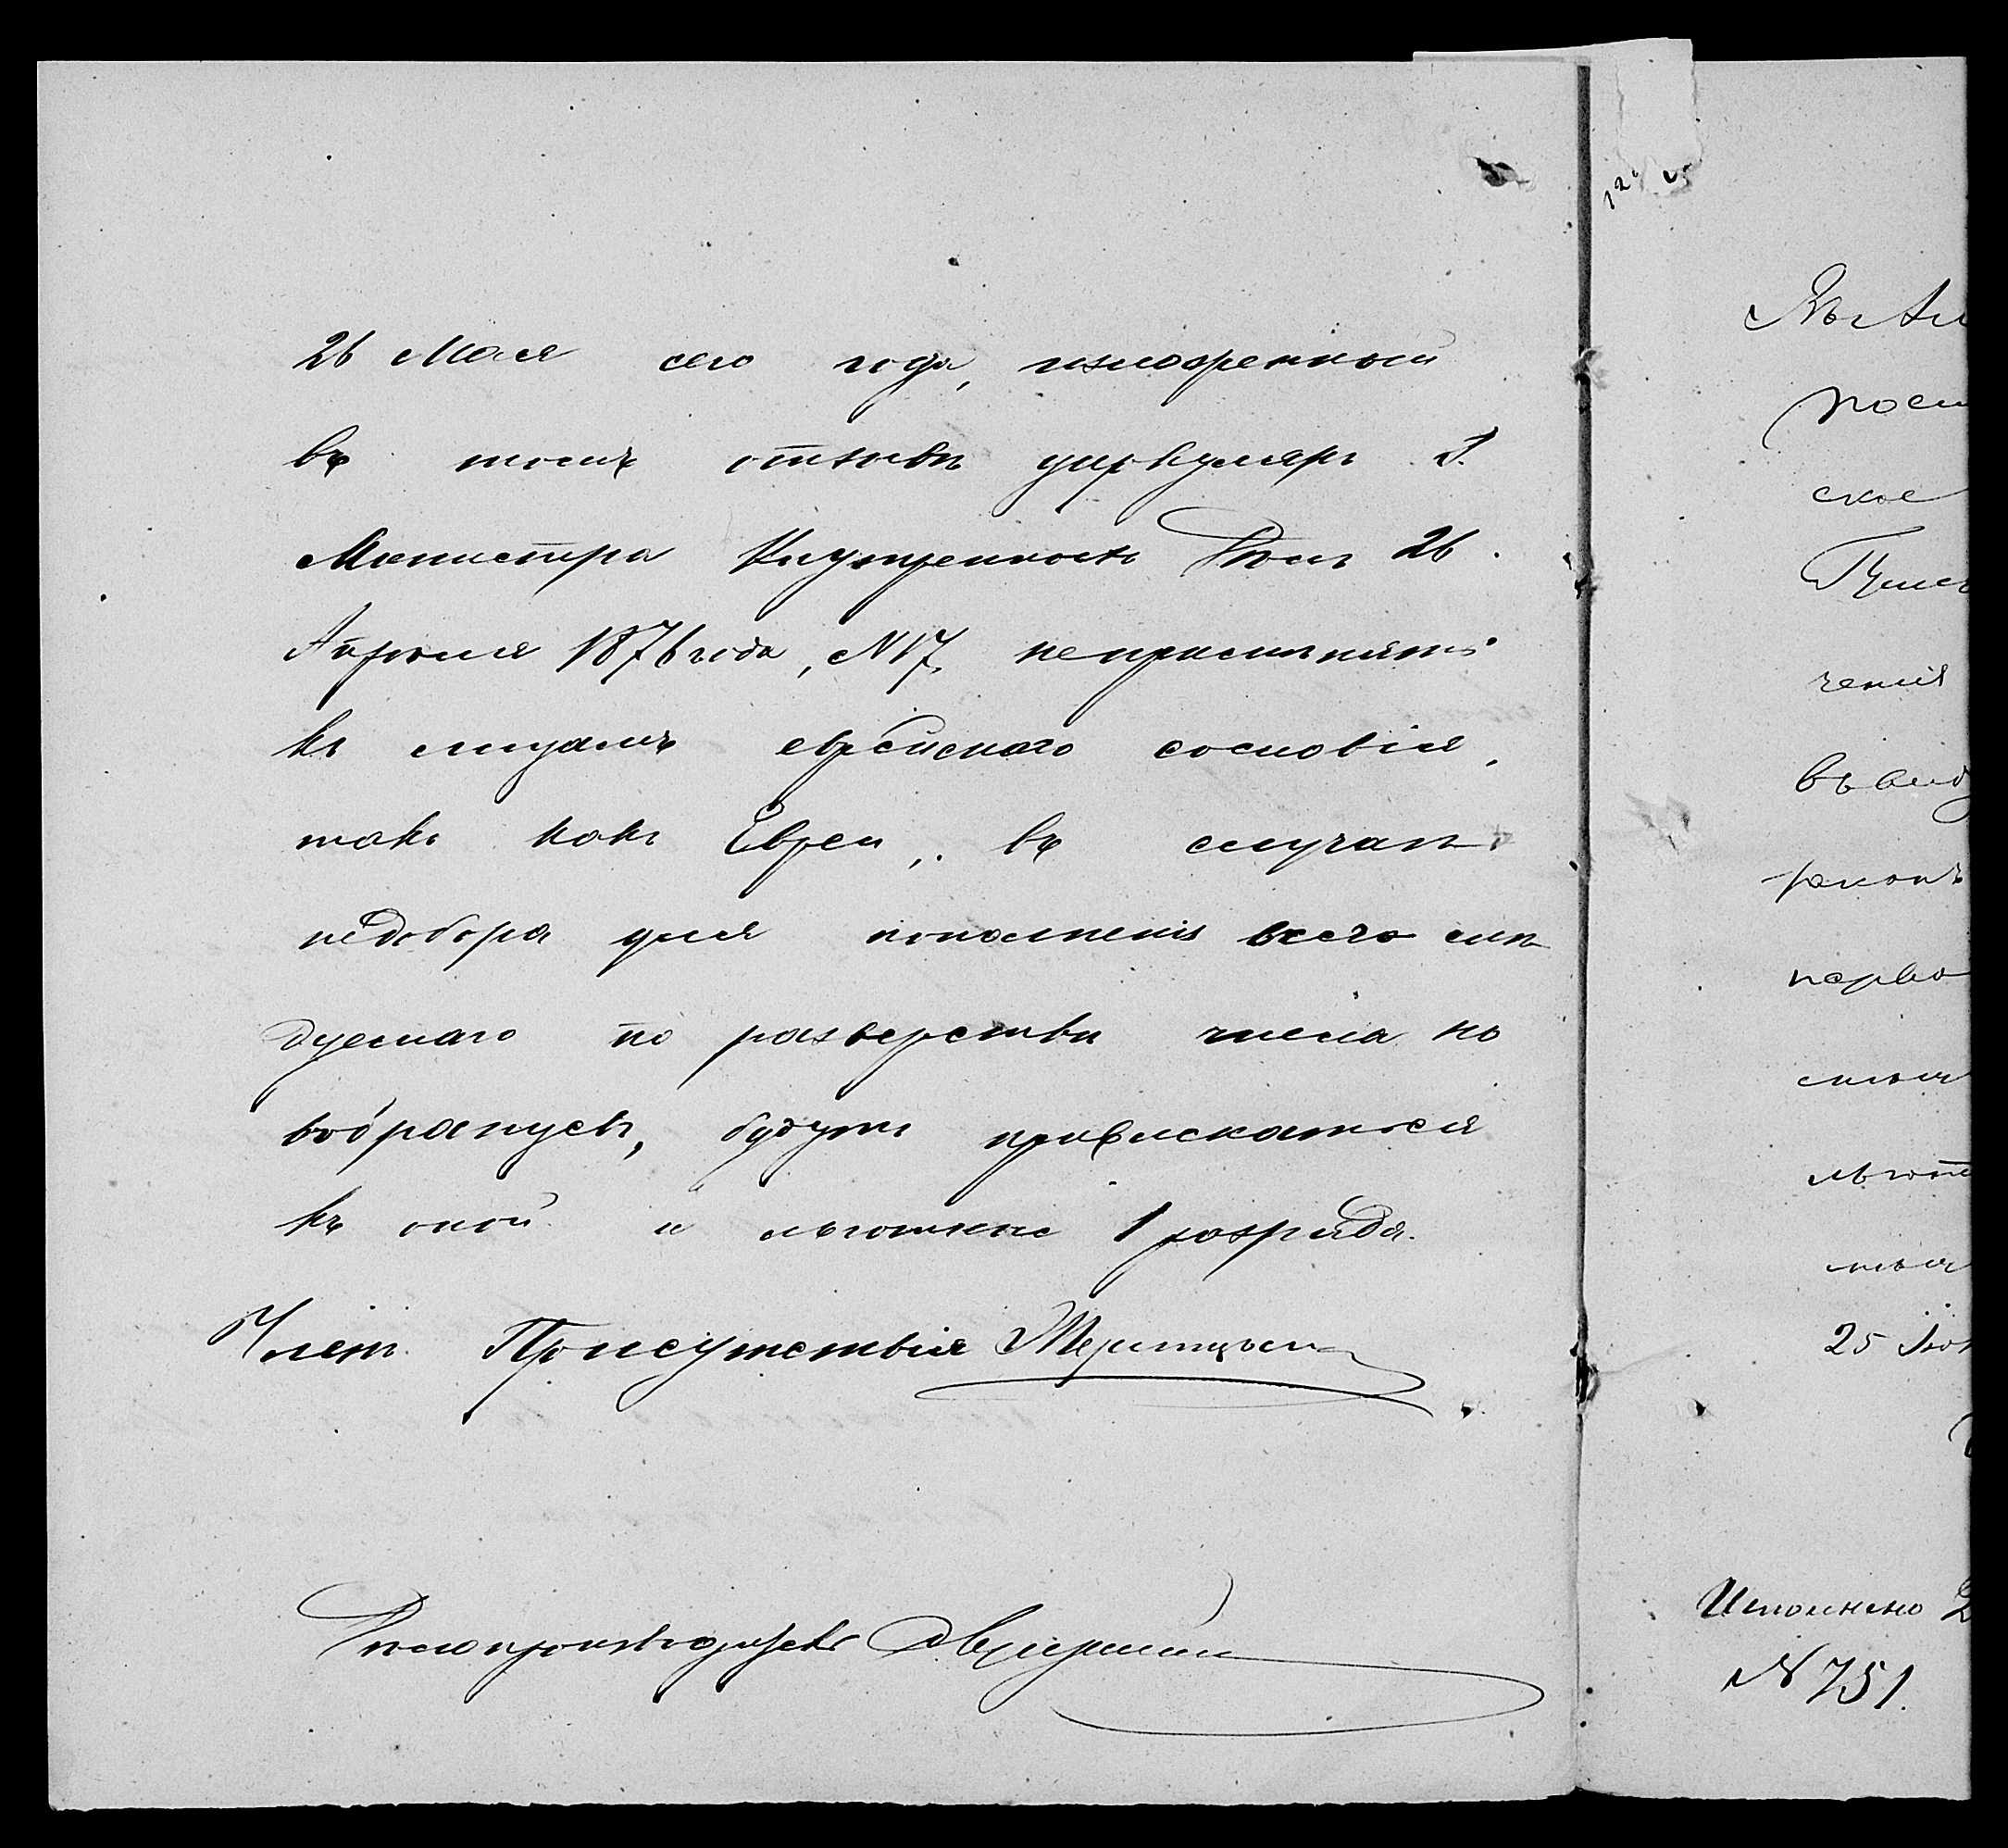 26 Мая сего года, изложенный
въ томъ отзывѣ циркуляръ Г.
Министра Внутреннихъ Дѣлъ 26
Апрѣля 1876 года, N 17, непримѣнять
къ лицамъ еврейскаго сословія,
такъ какъ Евреи, въ случаѣ
недобора для пополненія всего слѣ
дуемаго по разверсткѣ числа но
вобранцевъ, будутъ привлекаться
къ оной и льготные 1 разряда.
Членъ Присутствія
Дѣлопроизводитель
Въ
пост
ское
Прису
ченія
въ виду
раионѣ
перво
льготн
25 Іюн
Исполнено 2
N 751.